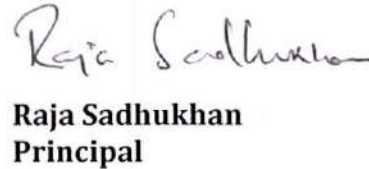 Raja Sadhukhan
Raja Sadhukhan
Principal